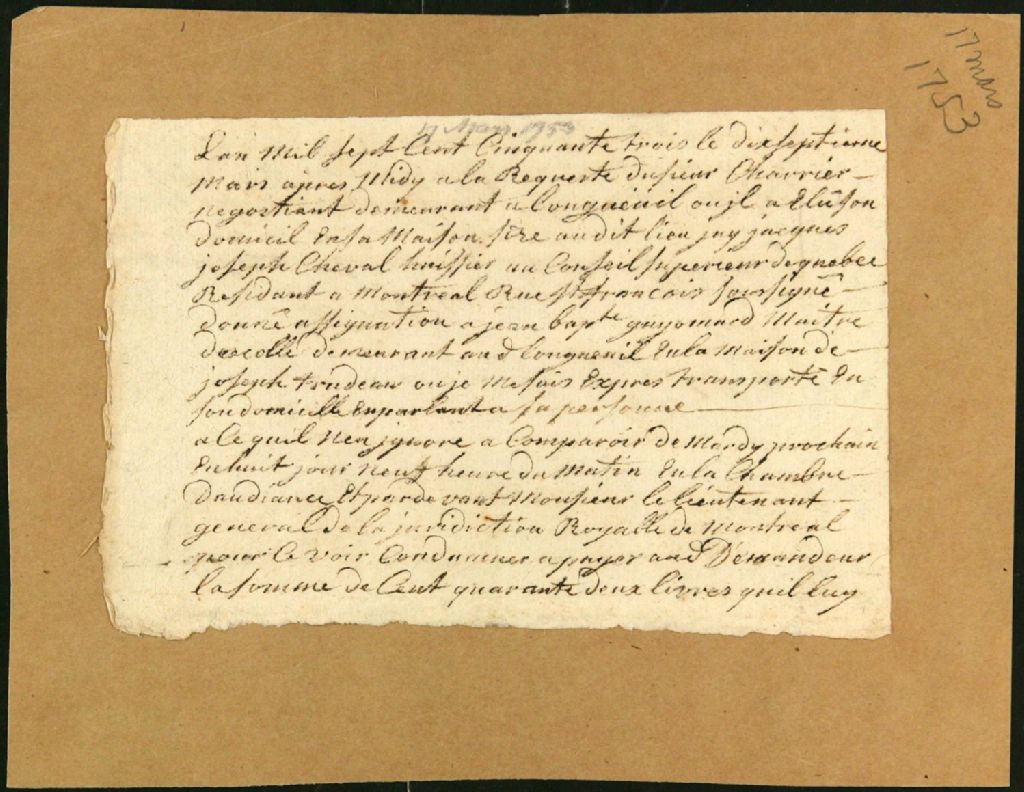 17 mars
1753
17 Mars 1753
Lan Mil sept Cent Cinquante trois le dixseptieme
Mars apres Midy a la Requeste dusieur Charrier
negostiant demeurant a Longueuil ou jl a Elu son
domicil En sa Maison size audit lieu jay jacques
joseph Cheval huissier au Conseil superieur de quebec
Residant a Montreal Rue St francois soussigné
donné assignation a jean bapte guyomard Maitre
descolle demeurant aud Longueuil En la Maison de
joseph trudeau ou je Mesuis Expres transporté En
son domicille En parlant a sa personne
a Ce quil Nen jgnore a Comparoir de Mardy prochain
En huit jour neuf heure du Matin En la Chambre
daudiance Et par devant Monsieur le lieutenant
general de la juridiction Royalle de Montreal
pour Ce voir Condamner a payer aud Demandeur
la somme de Cent quarante deux livres quil luy